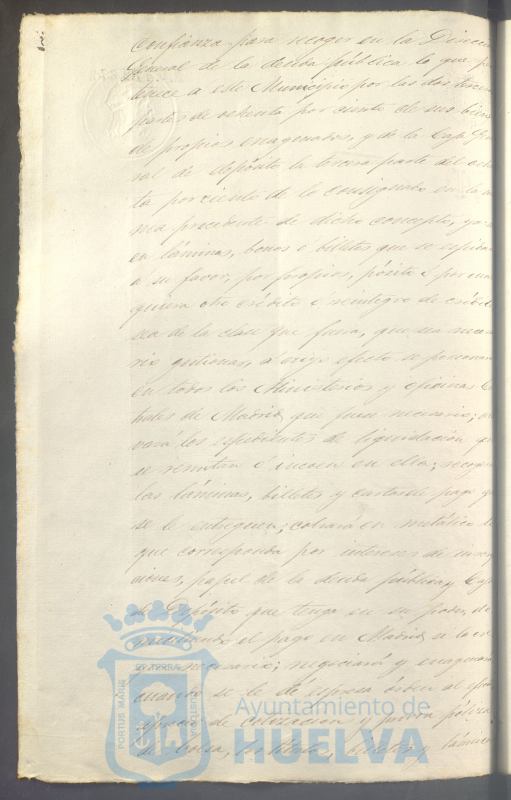 confianza para recoger en la Direcc
General de la deuda pública lo que p
tenece a este Municipio por las dos terce
partes de ochenta por ciento de sus bien
de propios enagenados, y de la Caja Gen
ral de depósito la tercera parte del oche
ta por ciento de lo consignado en la
ma procedente de dicho concepto, ya
en láminas, bonos ó billetes que se espidan
a su favor, por propios, pósito ó por cua
quiera otro crédito ó reintegro de crédit
sea de la clase que fuera, que sea neces
rio gestionar, a cuyo efecto se personará
en todos los Ministerios y oficinas
trales de Madrid que fuere necesario;
vará los espedientes de liquidación q
se remitan ó incoen en ella; recoge
las láminas, billetes y cartas de pago q
se le entreguen; cobrará en metálico lo
que corresponda por intereses de inscrip
ciones, papel de la deuda pública y Caja
de Depósito que tenga en su poder,
el pago en Madrid si lo cr
necesario; negociará y enagenará
cuando se le dé espresa órden al
de cotizacion y
de bolsa, los títulos, billetes y lámin
PORTUS MARIS
ET TERRAE
CUSTODIA
Ayuntamiento de
HUELVA